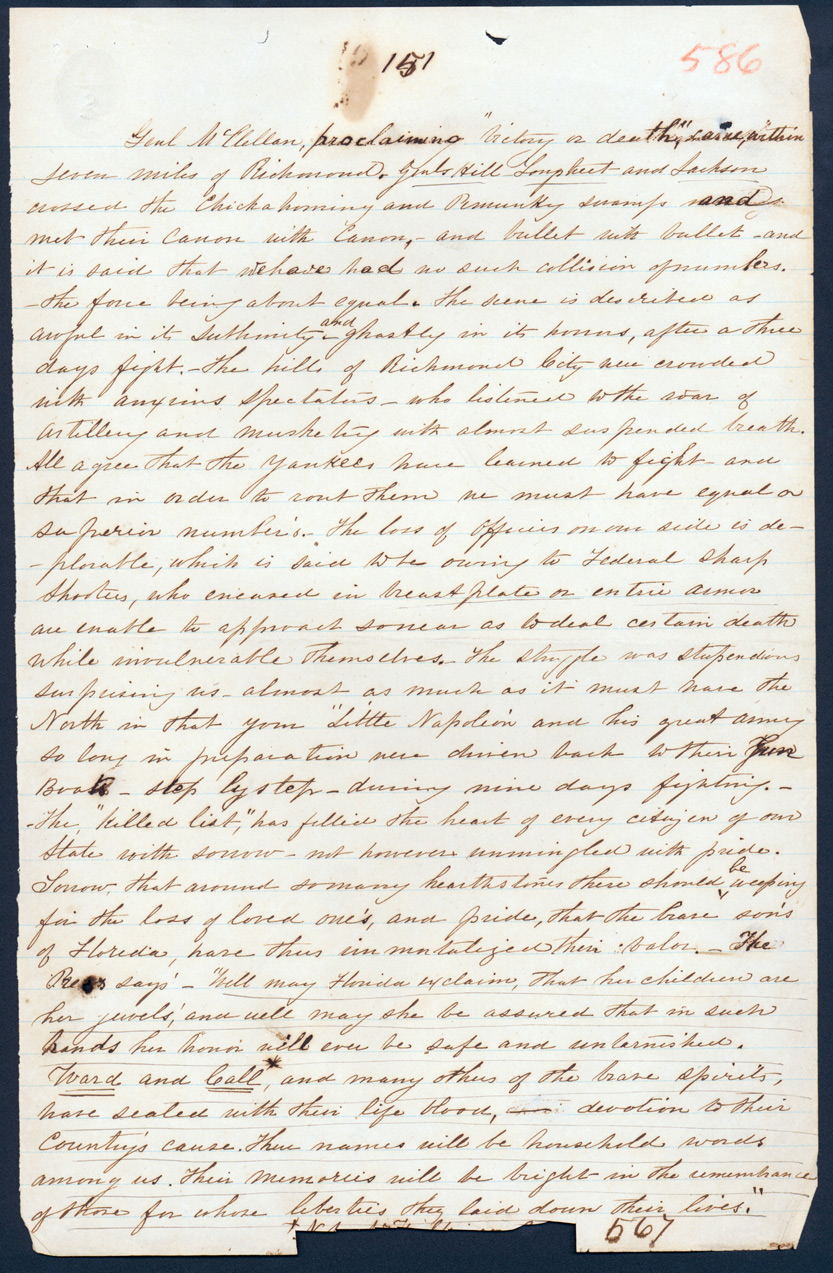 151
586
Genl McClellan, proclaiming "Victory or death", came, within
seven miles of Richmond. Genls Hill Longstreet and Jackson
crossed the Chickahominy and Pemunky swamps and
met their Canon with Canon, - and bullet with bullet - and
it is said that we have had no such collision of numbers.
- the force being about equal. The scene is described as
awful in its and ghastly in its horrors, after a three
days fight. - The hills of Richmond City were crowded
with anxious spectators - who listened to the roar of
artillery and musketry with almost suspended breath.
All agree that the Yankees have learned to fight - and
that in order to rout them we must have equal or
superior number's. - The loss of Officers on our side is de-
-plorable, which is said to be owing to Federal sharp
shooters, who encased in breast plate or entire armor
are enable to approach so near as to deal certain death
while invulnerable themselves. - The struggle was stupendous
surprising us - almost as much as it must have the
North in that your "Little Napoleon and his great army
so long in preparation were driven back to their Gun
Boats - step by step - during nine days fighting. -
- The, "killed list," has filled the heart of every citizen of our
State with sorrow - not however unmingled with pride.
Sorrow, that around so many hearthstones there should be weeping
for the loss of loved one's, and pride, that the brave son's
of Floreda, have thus immortalized their valor. - The
Press says' - "Well may Florida exclaim, that her children are
her jewels', and well may she be assured that in such
hands her honor will ever be safe and unternished.
Ward and Call*, and many others of the brave spirits,
have sealed with their life blood, devotion to their
Country's cause. Their names will be household words
among us. Their memories will be bright in the remembrance
of those for whose liberties they laid down their lives."
567